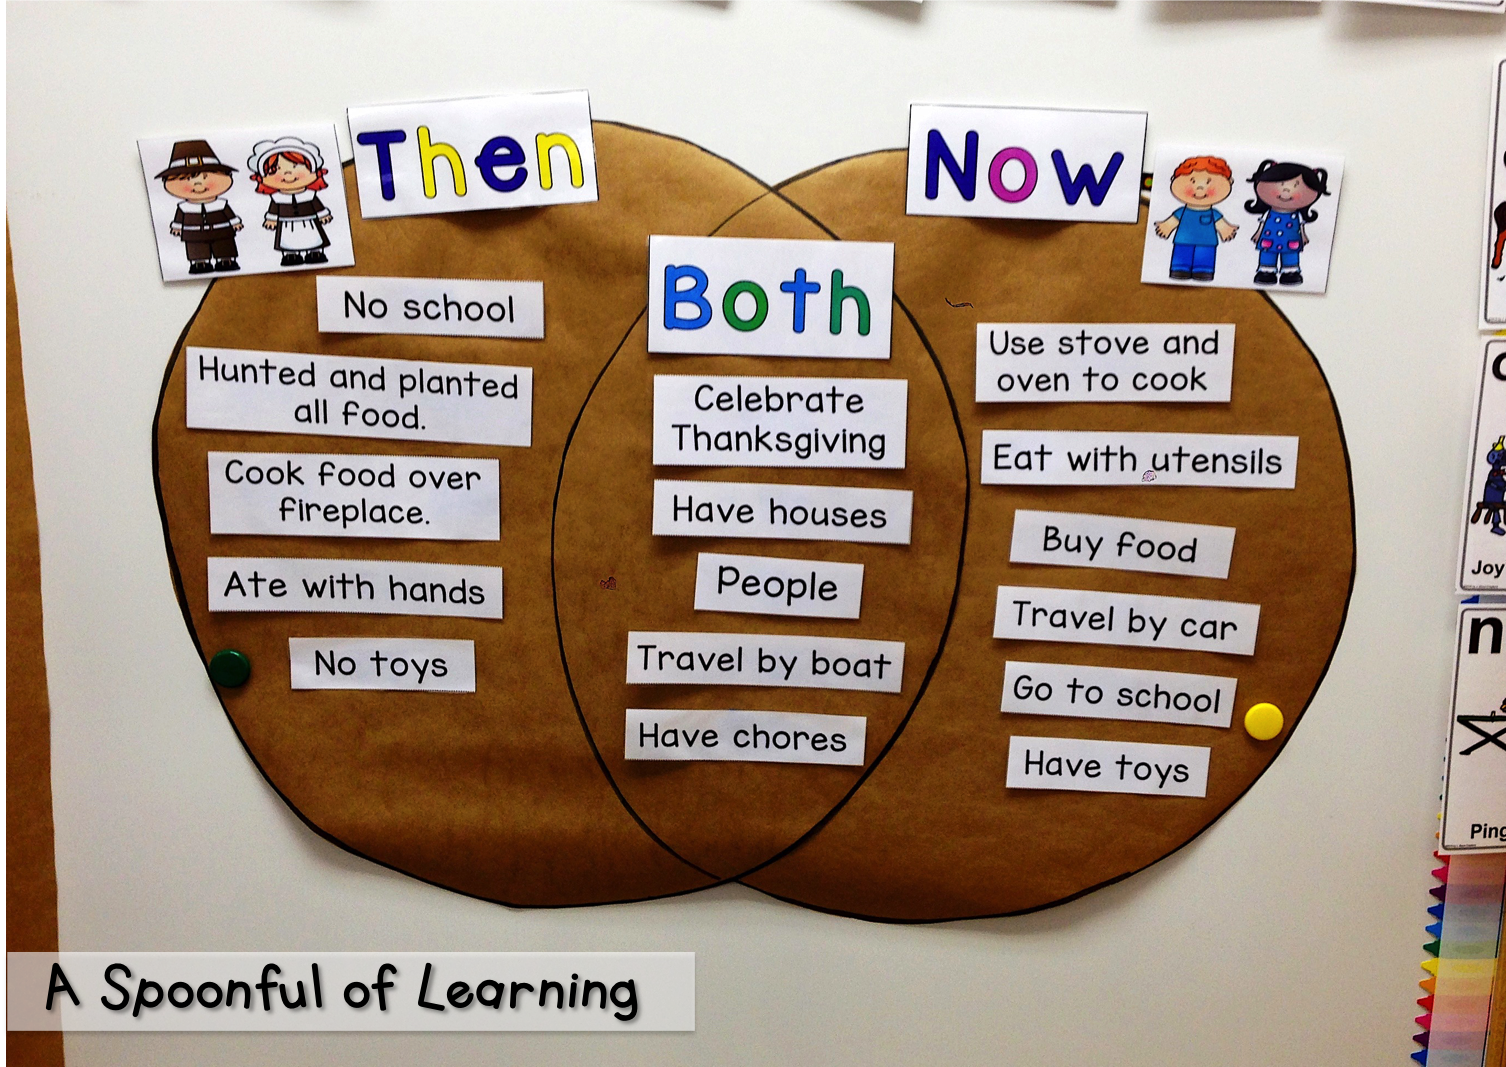 Then
No school
Hunted and planted
all food.
Cook food over
fireplace.
Ate with hands
No toys
Both
Celebrate
Thanksgiving
Have houses
People
Travel by boat
Have chores
Now
Use stove and
oven to cook
Eat with utensils
Buy food
Travel by car
Go to school
Have toys
Joy
n
Ping
A Spoonful of Learning